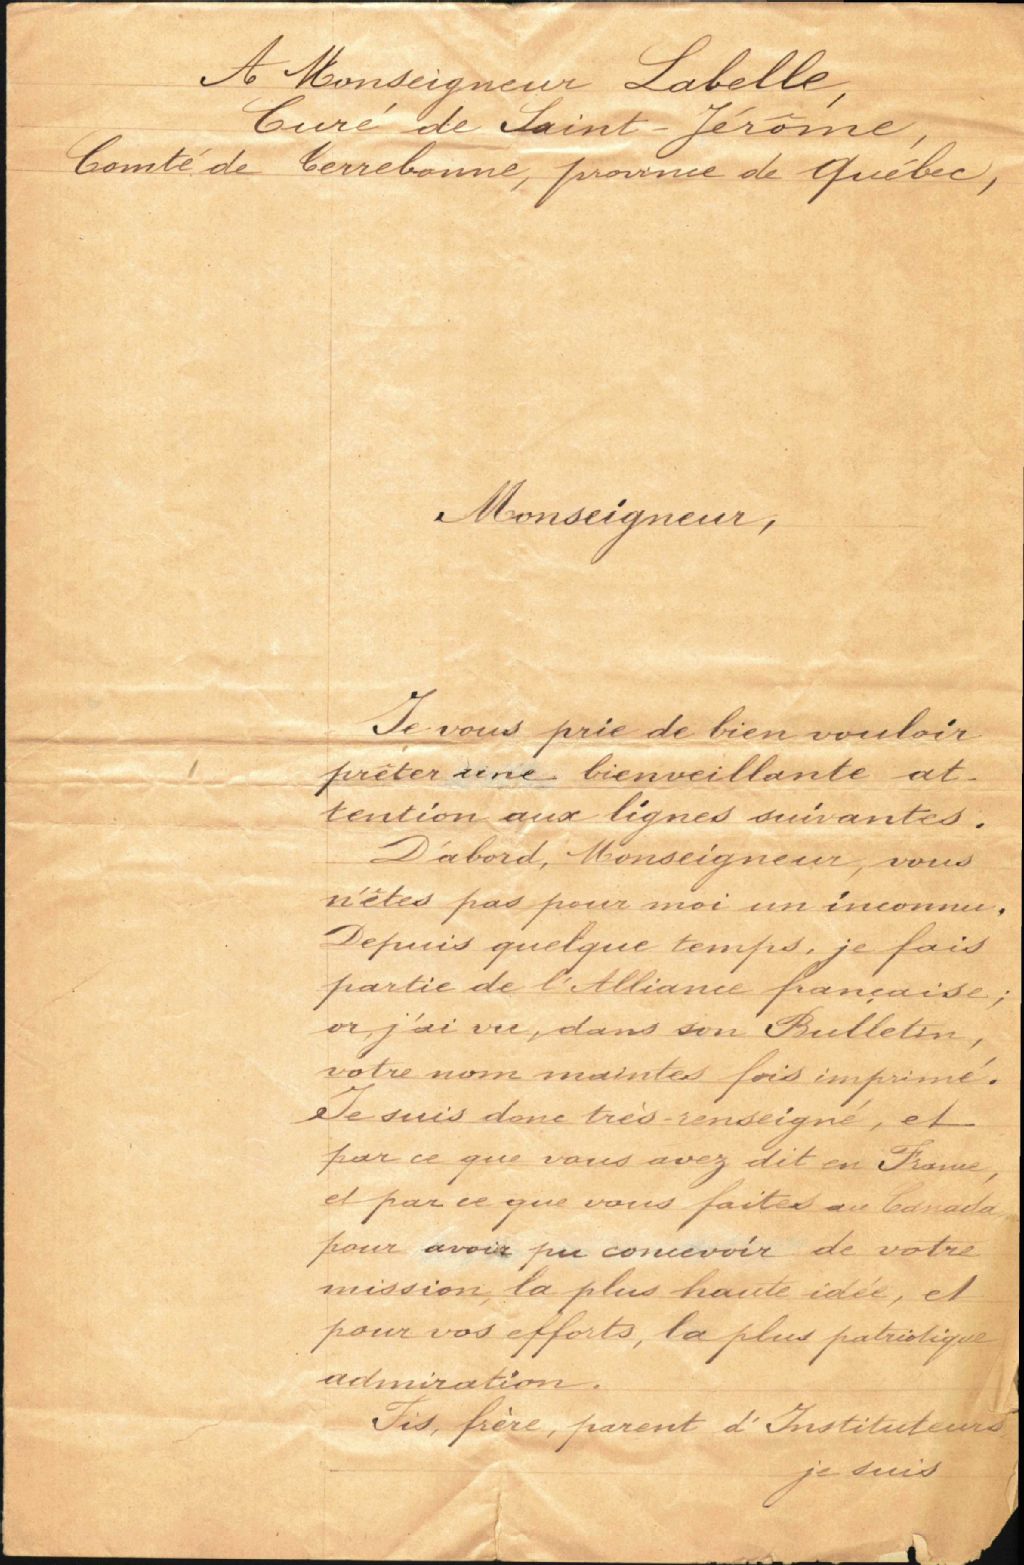 A Monseigneur Labelle,
Curé de Saint-Jérôme,
Comté de Terrebonne, province de Québec,
Monseigneur,
Je vous prie de bien vouloir
prêter une bienveillante at-
tention aux lignes suivantes.
D'abord, Monseigneur, vous
n'êtes pas pour moi un inconnu.
Depuis quelque temps, je fais
partie de l'Alliance française;
or, j'ai vu, dans son Bulletin,
votre nom maintes fois imprimé.
Je suis donc très-renseigné, et
par ce que vous avez dit en France,
et par ce que vous faites au Canada
pour avoir pu concevoir de votre
mission, la plus haute idée, et
pour vos efforts, la plus patriotique
admiration.
Fis, frère, parent d'Instituteurs
je suis